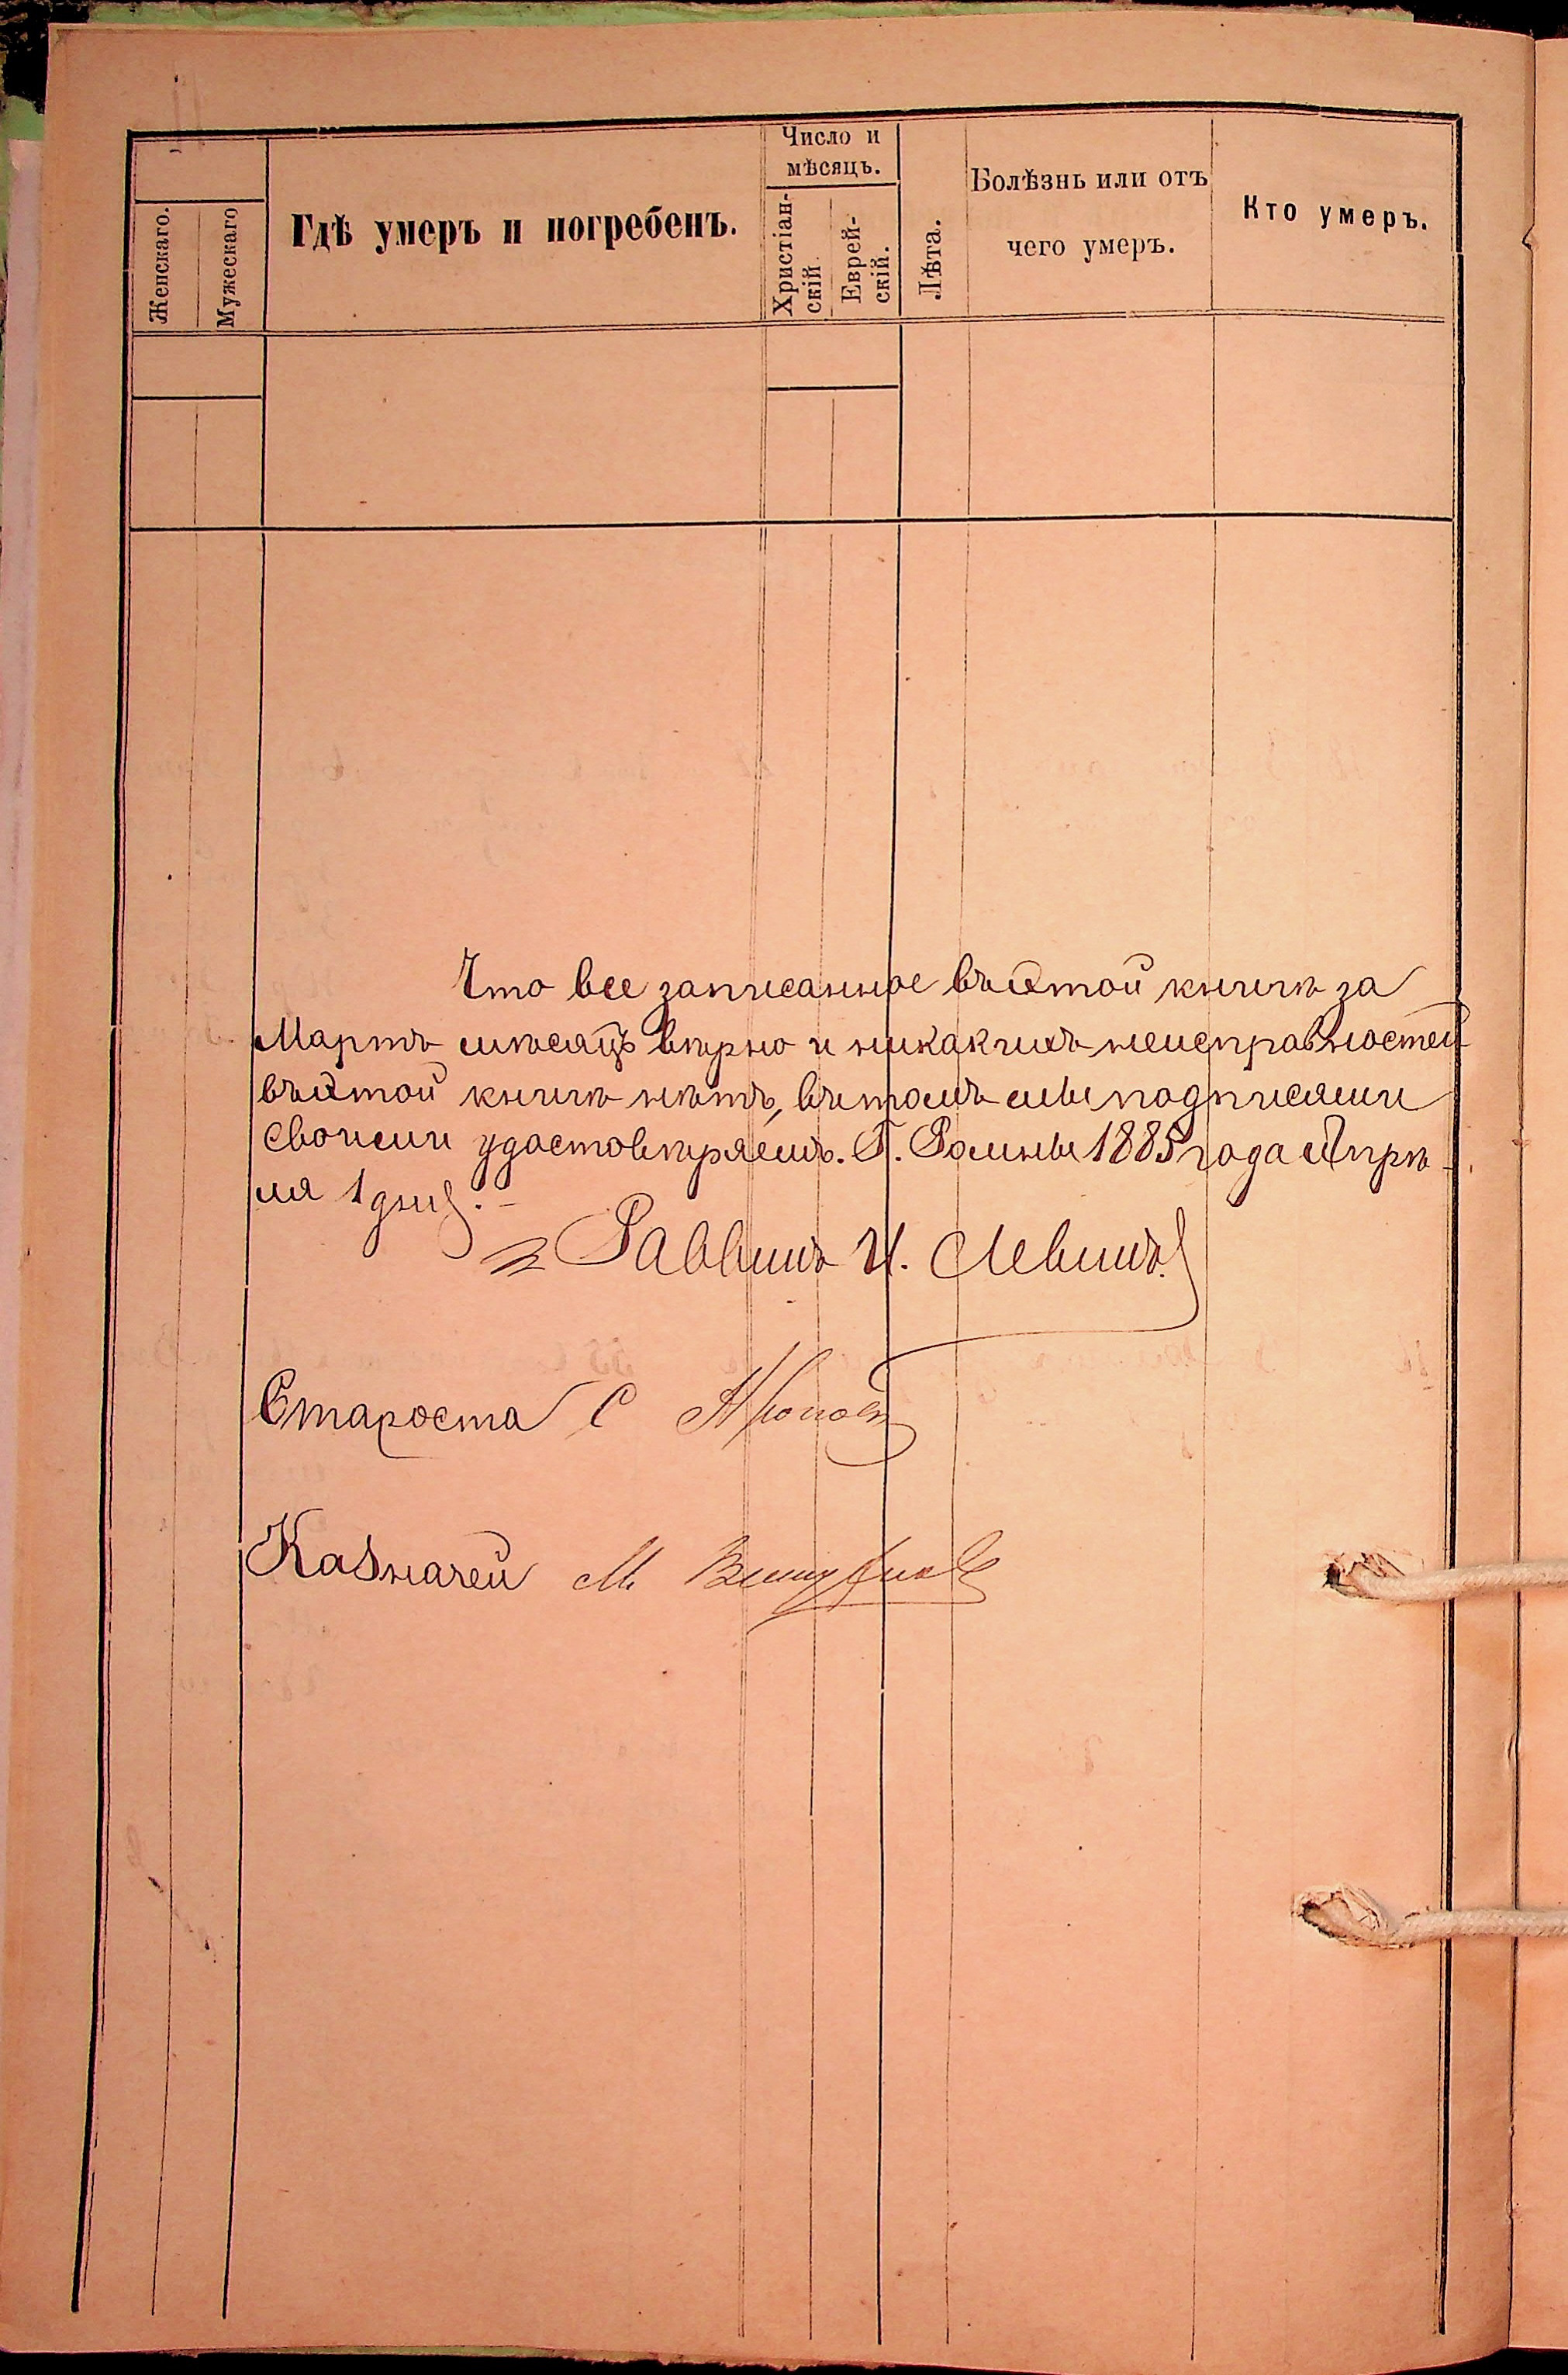 Женскаго.
Мужескаго
Гдѣ умеръ и погребенъ.
Число и
мѣсяцъ.
Христіан-
скій.
Еврей-
скій.
Лѣта.
Болѣзнь или отъ
чего умеръ.
Кто умеръ.
Что все записанное въ этой книгѣ за
Мартъ мѣсяцъ вѣрно и никакихъ неисправностей
въ этой книгѣ нѣтъ, въ томъ мы подписями
своими удостовѣряемъ. Г. Ромны 1885 года Апрѣ-
ля 1 дня.
Раввинъ И. Левинъ
Староста С
Казначей М.